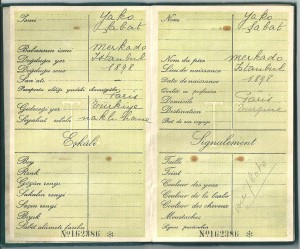 İsmi
Yako
Sabat
Babasının ismi
merkado
Doğduğu yer
İstanbul
Doğduğu sene
1898
San'atı
Paris
Gideceği yer
Türkiye
Seyahat sebebi
nakli hane
Eşkâli
Boy
Renk
Gözün rengi
Sakalın rengi
Saçın rengi
Bıyık
Sabit alâmeti farika
№162386
Nom
Yako
Sabat
Nom du père
merkado
Lieu de naissance
Istanbul
Date de naissance
1898
Qualité ou profession
Domicile
Paris
Destination
But de son voyage
Signalement
Taille
Teint
Couleur des yeux
Couleur de la barbe
Couleur des cheveux
Moustaches
Signes particuliers
№162386